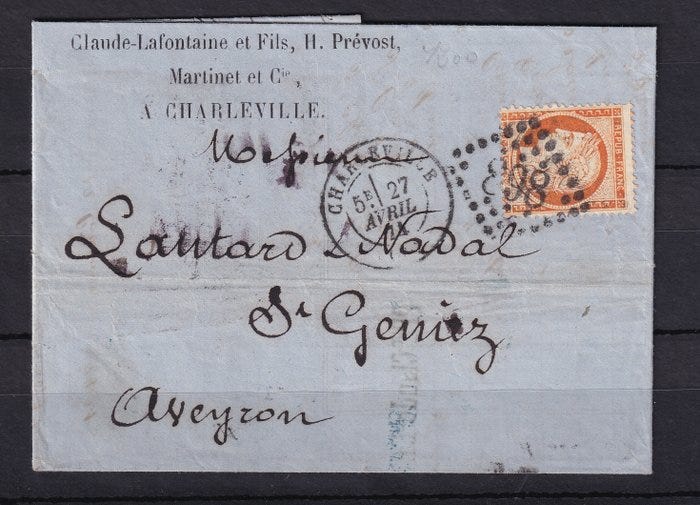 Claude-Lafontaine et Fils, H. Prévost,
Martinet et Cie,
A CHARLEVILLE.
1200
Messieurs
CHARLEVILLE
5E 27
AVRIL
898
REPUB. FRANC.
Lautard & Nadal
St Geniez
Aveyron